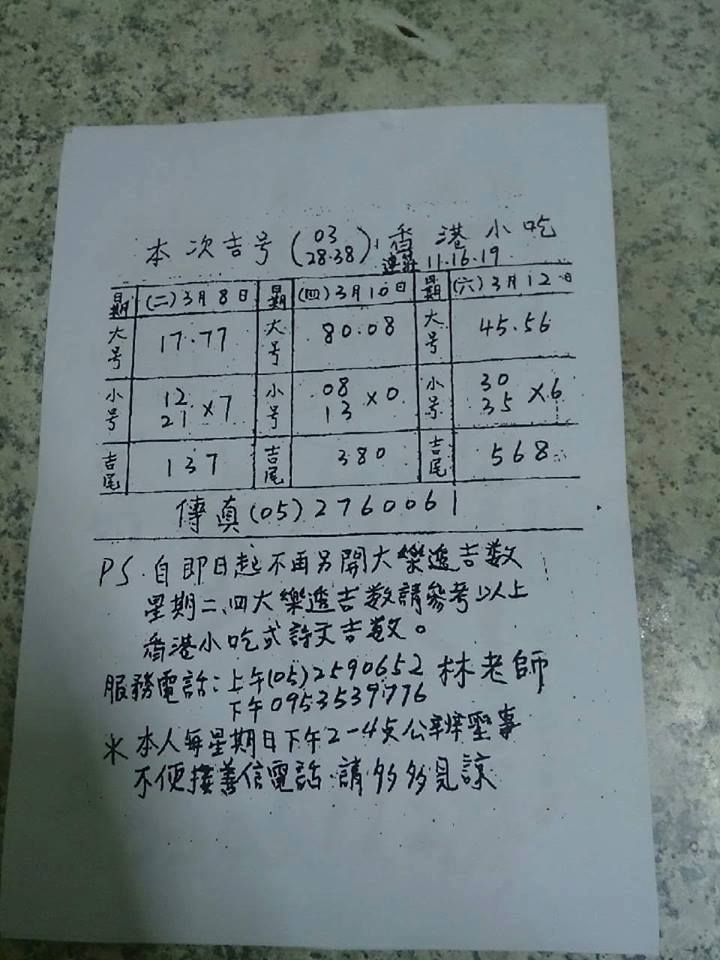 本次吉号(03 28.38)香港小吃
連莊 11.16.19
星期 (二)3月8日 星期 (四)3月10日 星期 (六)3月12日
大号 17.77 大号 80.08 大号 45.56
小号 12 21 x7 小号 08 13 x0 小号 30 35 x6
吉尾 137 吉尾 380 吉尾 568
傳真(05)2760061
PS.自即日起不再另開大樂透吉数
星期二、四大樂透吉数請參考以上
香港小吃式詩文吉数。
服務電話:上午(05)2590652 林老師
下午0953539776
*本人每星期日下午2-4点公辦聖事
不便接善信電話.請多多見諒